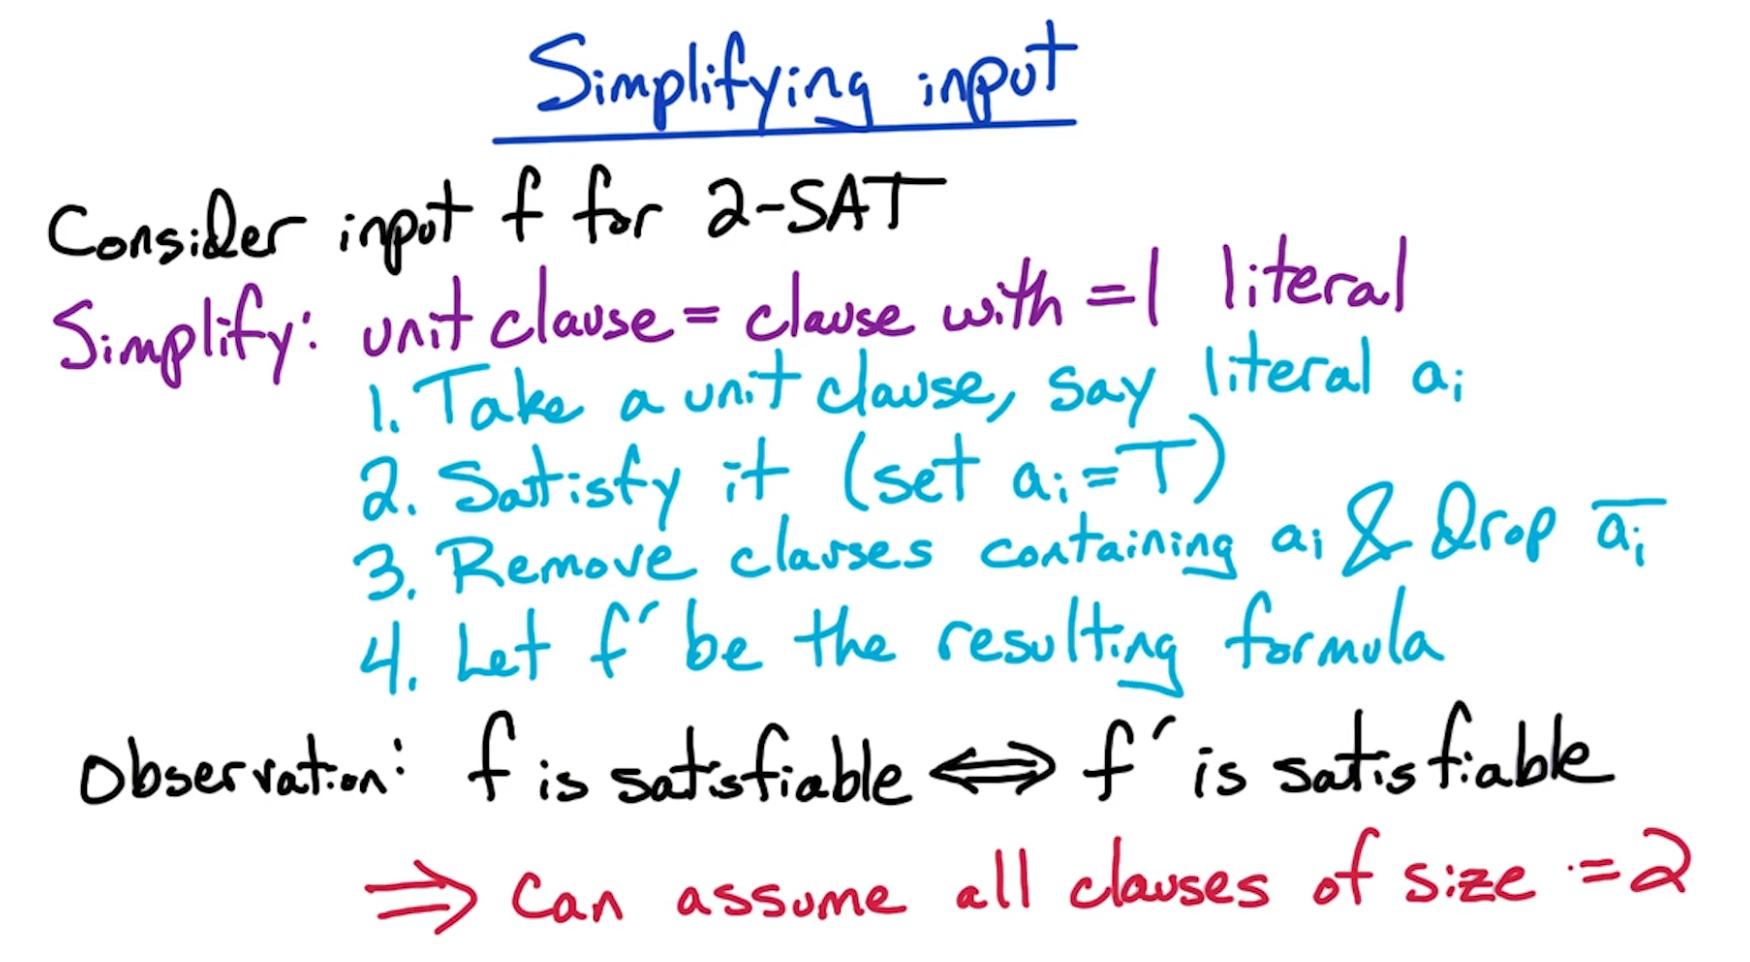 Simplifying input
Consider input f for 2-SAT
Simplify: unit clause = clause with =1 literal
1. Take a unit clause, say literal aᵢ
2. Satisfy it (set aᵢ=T)
3. Remove clauses containing aᵢ & Drop a̅ᵢ
4. Let f′ be the resulting formula
Observation: f is satisfiable ⟺ f′ is satisfiable
⟹ Can assume all clauses of size =2